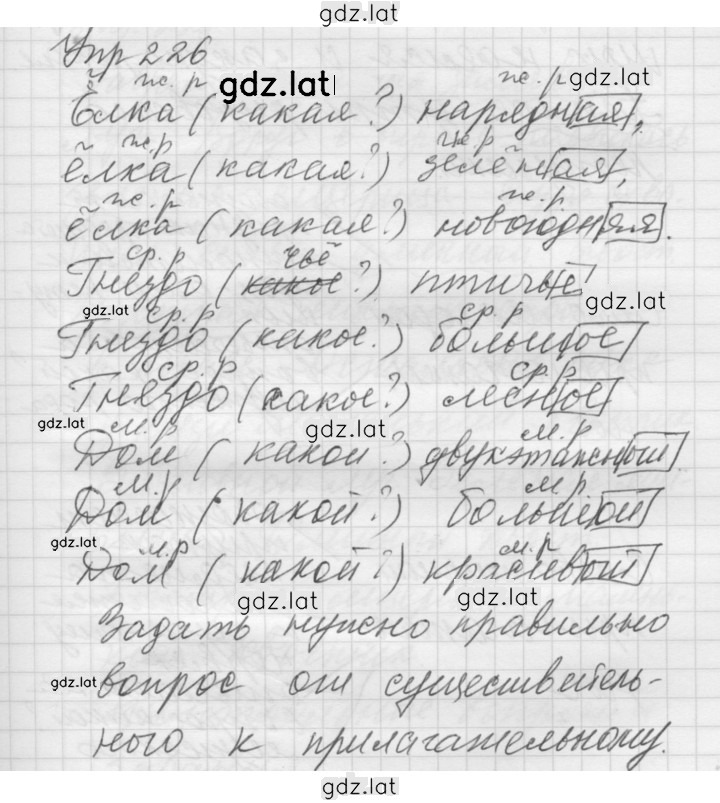 gdz.lat
Упр 226
ж. р gdz.lat ж. р gdz.lat
Ёлка (какая?) нарядная,
ж. р ж. р
ёлка (какая?) зелёная,
ж. р ж. р
ёлка (какая?) новогодняя.
ср. р чьё
Гнездо (какое?) птичье
gdz.lat ср. р ср. р gdz.lat
Гнездо (какое?) большое
ср. р ср. р
Гнездо (какое?) лесное
gdz.lat м. р gdz.lat м. р
Дом (какой?) двухэтажный
м. р м. р
Дом (какой?) большой
gdz.lat м. р м. р
Дом (какой?) красивый
gdz.lat gdz.lat
Задать нужно правильно
gdz.lat вопрос от существитель-
ного к прилагательному.
gdz.lat